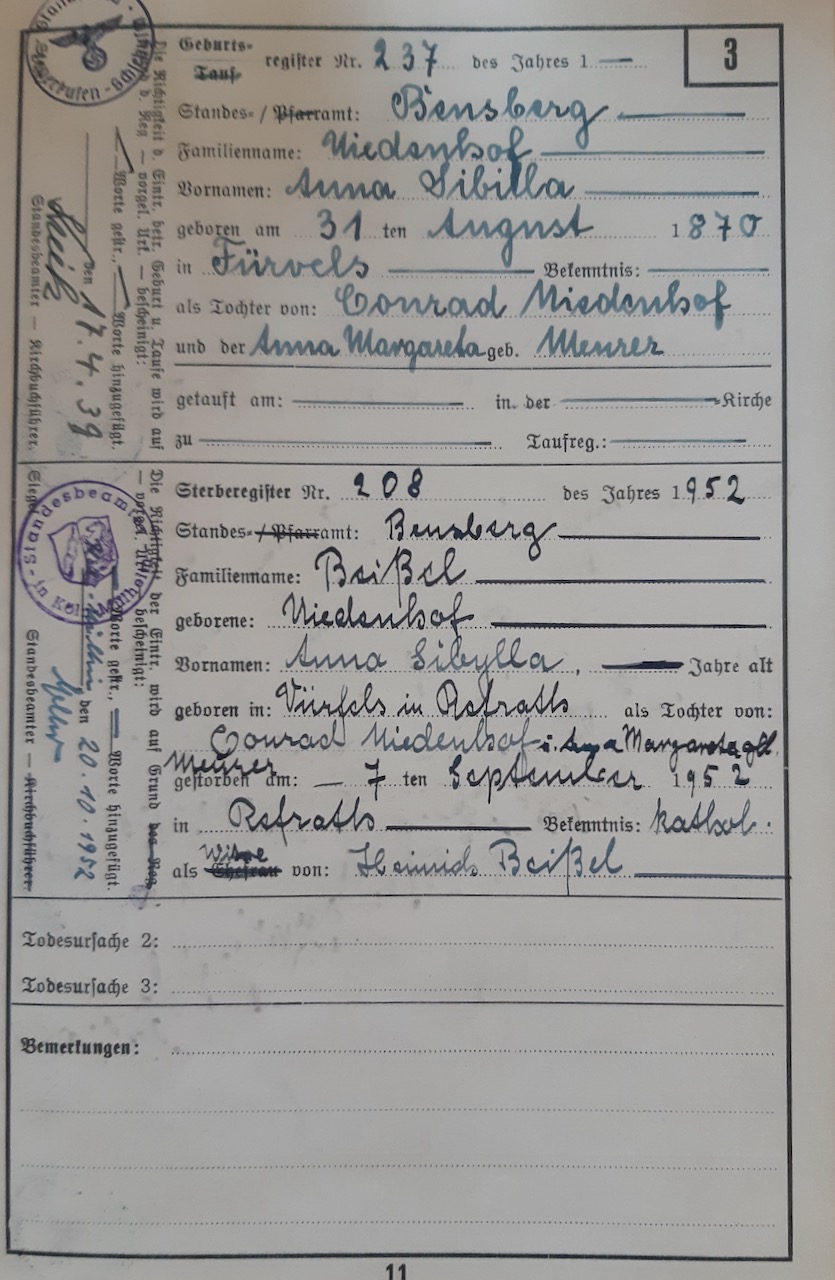 3
Geburts-
Tauf- register Nr. 237 des Jahres 1
Standes- / Pfarramt: Bensberg
Familienname: Niedenhof
Vornamen: Anna Sibilla
geboren am 31 ten August 1870
in Fürvels Bekenntnis:
als Tochter von: Conrad Niedenhof
und der Anna Margareta geb. Meurer
getauft am: in der -Kirche
zu Taufreg.:
Die Richtigkeit d. Eintr. betr. Geburt u. Taufe wird auf
Grund d. Reg. — vorgel. Urk. — bescheinigt:
Worte gestr., Worte hinzugefügt.
den 17.4.39
Standesbeamter — Kirchbuchführer.
Sterberegister Nr. 208 des Jahres 1952
Standes- / Pfarramt: Bensberg
Familienname: Beißel
geborene: Niedenhof
Vornamen: Anna Sibylla, Jahre alt
geboren in: Vürfels in Refrath als Tochter von:
Conrad Niedenhof Margareta
Meurer
gestorben am: — 7 ten September 1952
in Refrath Bekenntnis: kathol.
Witwe
als Ehefrau von: Heinrich Beißel
Die Richtigkeit der Eintr. wird auf Grund des Reg.
— vorgel. Urk. — bescheinigt:
Worte gestr., Worte hinzugefügt.
den 20.10.1952
Standesbeamter — Kirchbuchführer
Siegel
Standesbeamte
in Köln
Todesursache 2:
Todesursache 3:
Bemerkungen:
11